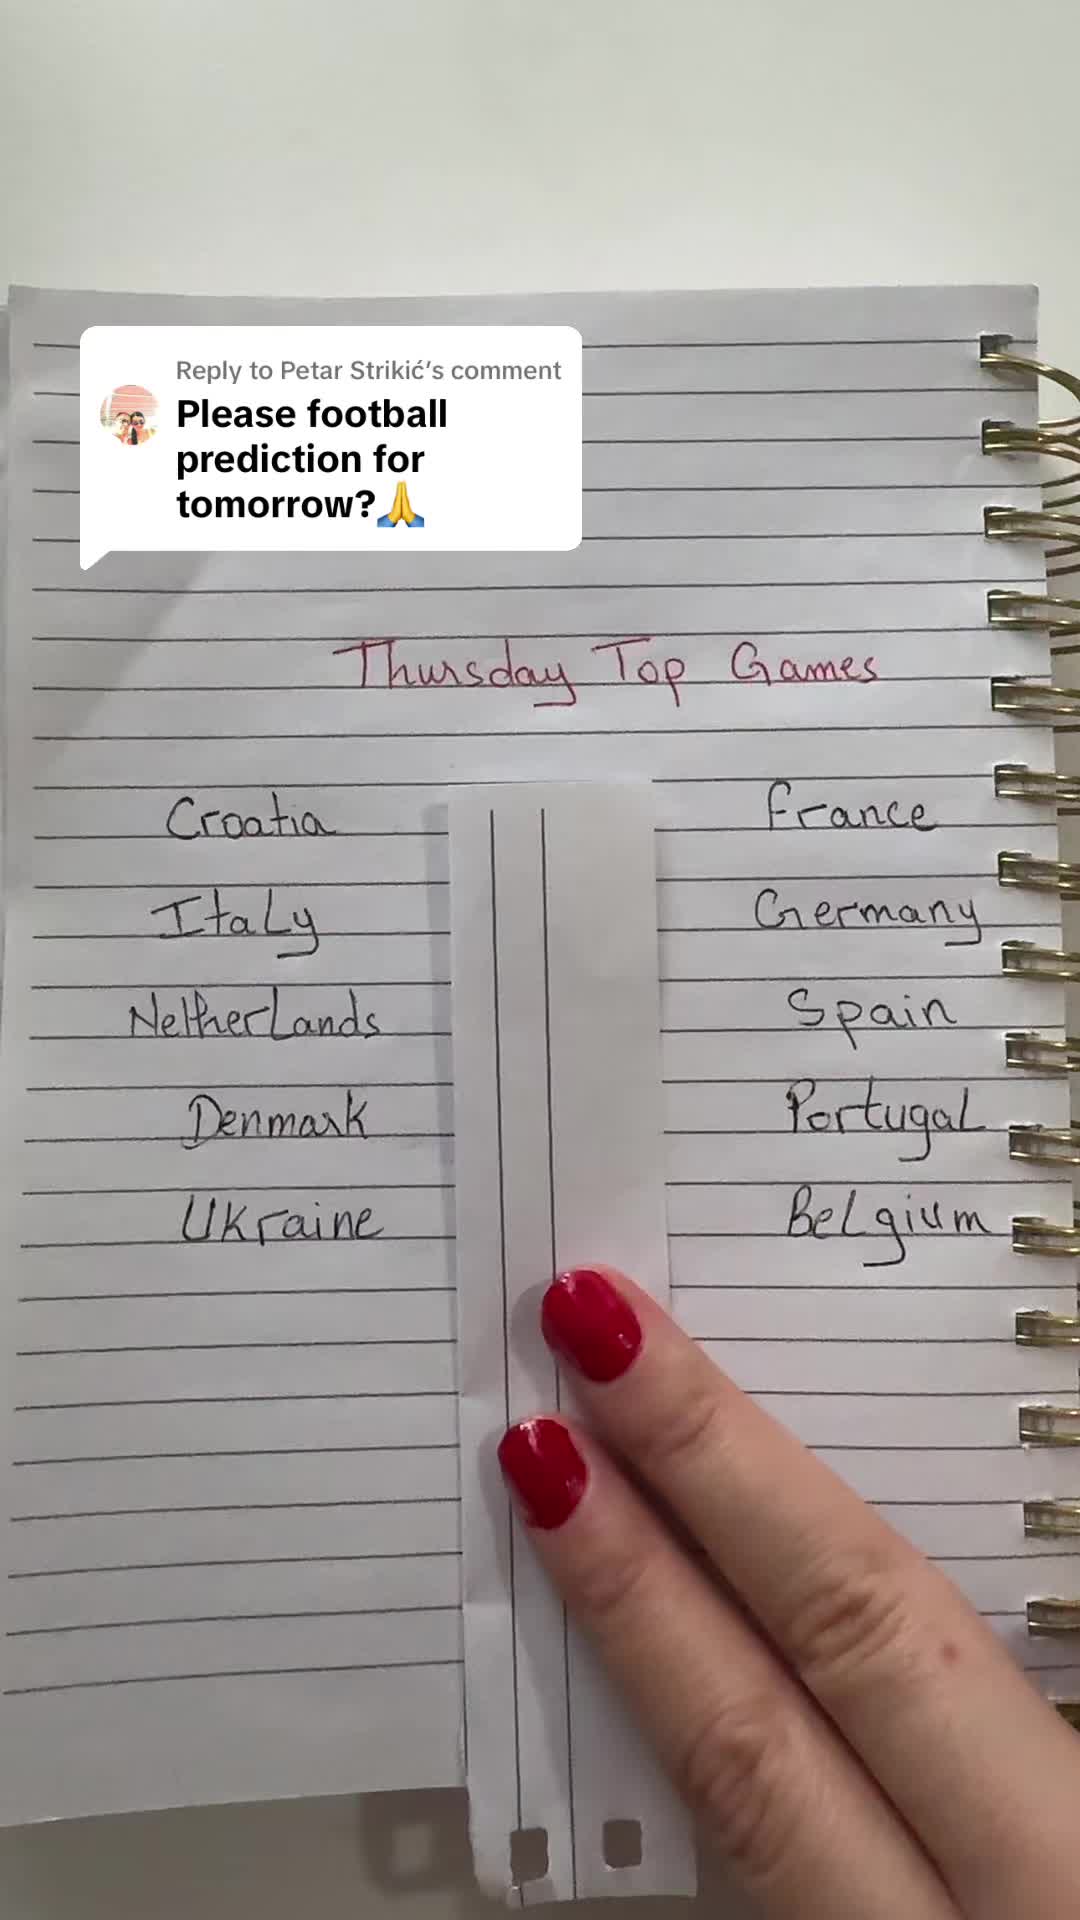 Reply to Petar Strikić's comment
Please football
prediction for
tomorrow?🙏
Thursday Top Games
Croatia France
Italy Germany
Netherlands Spain
Denmark Portugal
Ukraine Belgium